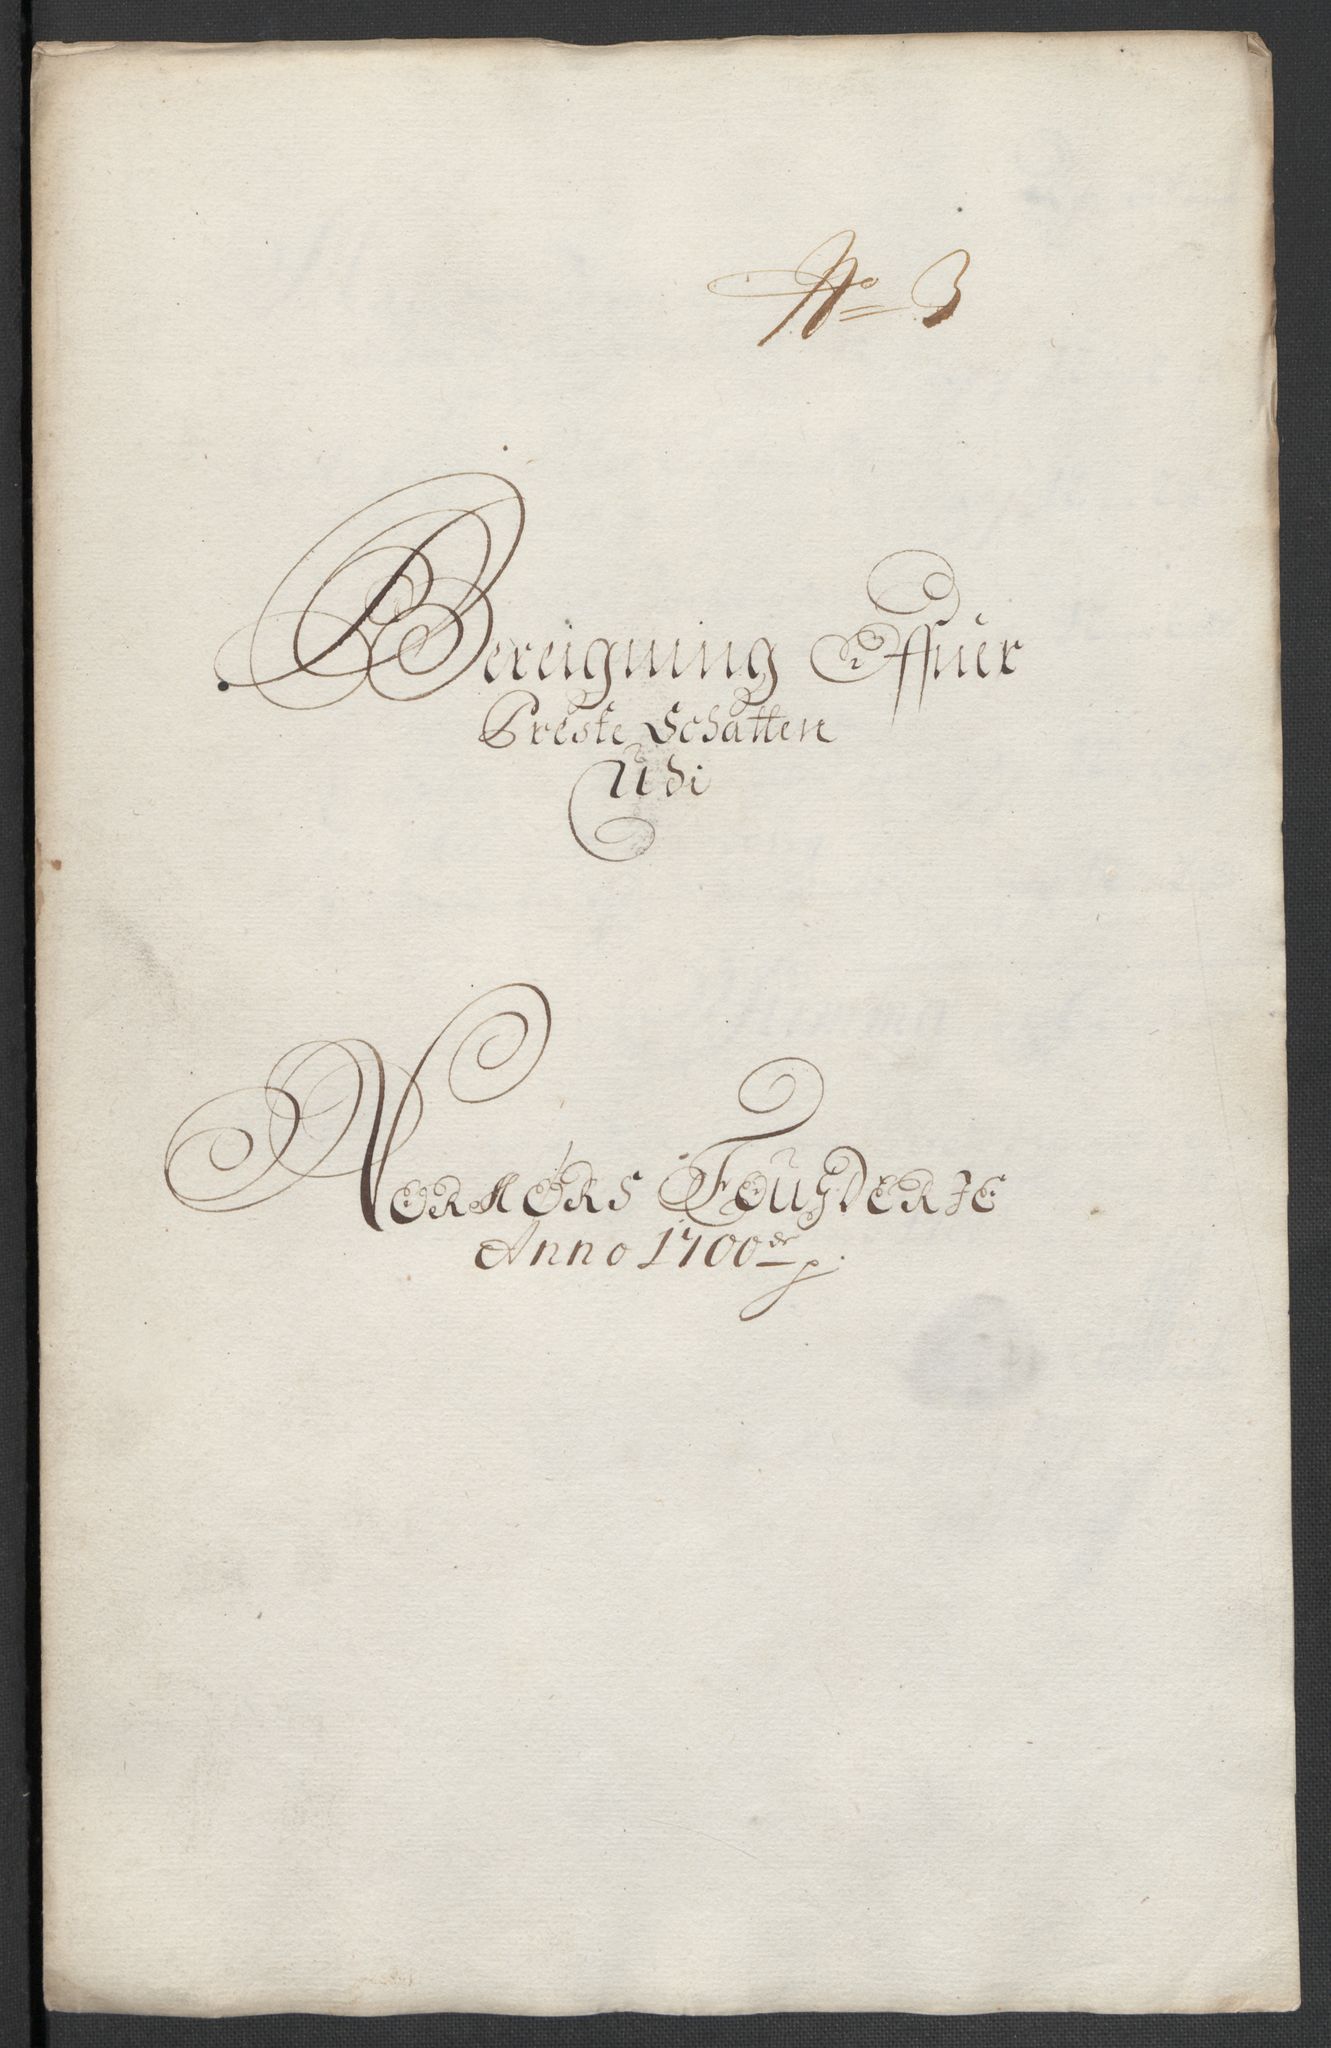 No 3
Bereigning Offuer
Preste Schatten
Udi
Normørs Fougderje
Anno 1700de